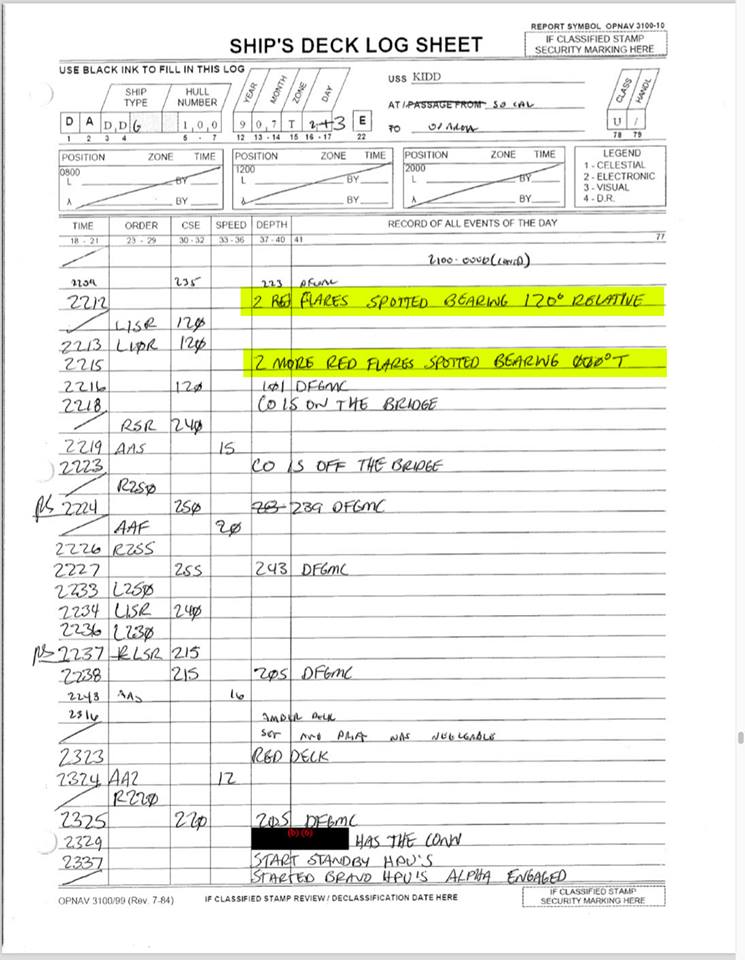 REPORT SYMBOL OPNAV 3100-10
SHIP'S DECK LOG SHEET
IF CLASSIFIED STAMP
SECURITY MARKING HERE
USE BLACK INK TO FILL IN THIS LOG
SHIP TYPE HULL NUMBER YEAR MONTH ZONE DAY
USS KIDD
CLASS HANDL
AT / PASSAGE FROM SO CAL
D A D,D G 1,0,0 9 0,7 T 2+3 E U /
TO
1 2 3 4 5 - 7 12 13 - 14 15 16 - 17 22 78 79
POSITION ZONE TIME POSITION ZONE TIME POSITION ZONE TIME LEGEND
0800 1200 2000 1 - CELESTIAL
L BY L BY L BY 2 - ELECTRONIC
3 - VISUAL
λ BY λ BY λ BY 4 - D.R.
TIME ORDER CSE SPEED DEPTH RECORD OF ALL EVENTS OF THE DAY
18 - 21 23 - 29 30 - 32 33 - 36 37 - 40 41 77
2209 235 223
2212 2 RED FLARES SPOTTED BEARING 120° RELATIVE
L15R 120
2213 L10R 120
2215 2 MORE RED FLARES SPOTTED BEARING 000°T
2216 120 101 DFGMC
2218 CO IS ON THE BRIDGE
R5R 240
2219 AAS 15
2223 CO IS OFF THE BRIDGE
R250
2224 250 239 DFGMC
AAF 20
2226 R255
2227 255 243 DFGMC
2233 L250
2234 L15R 240
2236 L230
2237 215
2238 215 205 DFGMC
2248 AAS 16
2316 AMBER DECK
2323 RED DECK
2324 AA2 12
R220
2325 220 205 DFGMC
2329 (b) (6) HAS THE CONN
2337 START STANDBY HPU'S
STARTED BRAVO HPU'S ALPHA ENGAGED
OPNAV 3100/99 (Rev. 7-84) IF CLASSIFIED STAMP REVIEW / DECLASSIFICATION DATE HERE
IF CLASSIFIED STAMP
SECURITY MARKING HERE